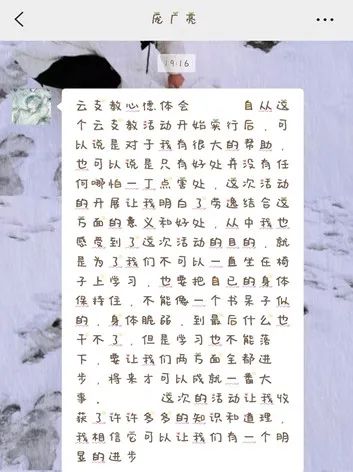 庞广亮
19:16
云支教心德体会　　自从这
个云支教活动开始实行后，可
以说是对于我有很大的帮助，
也可以说是只有好处并没有任
何哪怕一丁点害处，这次活动
的开展让我明白了劳逸结合这
方面的意义和好处，从中我也
感受到了这次活动的目的，就
是为了我们不可以一直坐在椅
子上学习，也要把自已的身体
保持住，不能像一个书呆子似
的，身体脆弱，到最后什么也
干不了，但是学习也不能落
下，要让我们两方面全都进
步，将来才可以成就一番大
事。　　　这次的活动让我收
获了许许多多的知识和道理，
我相信它可以让我们有一个明
显的进步